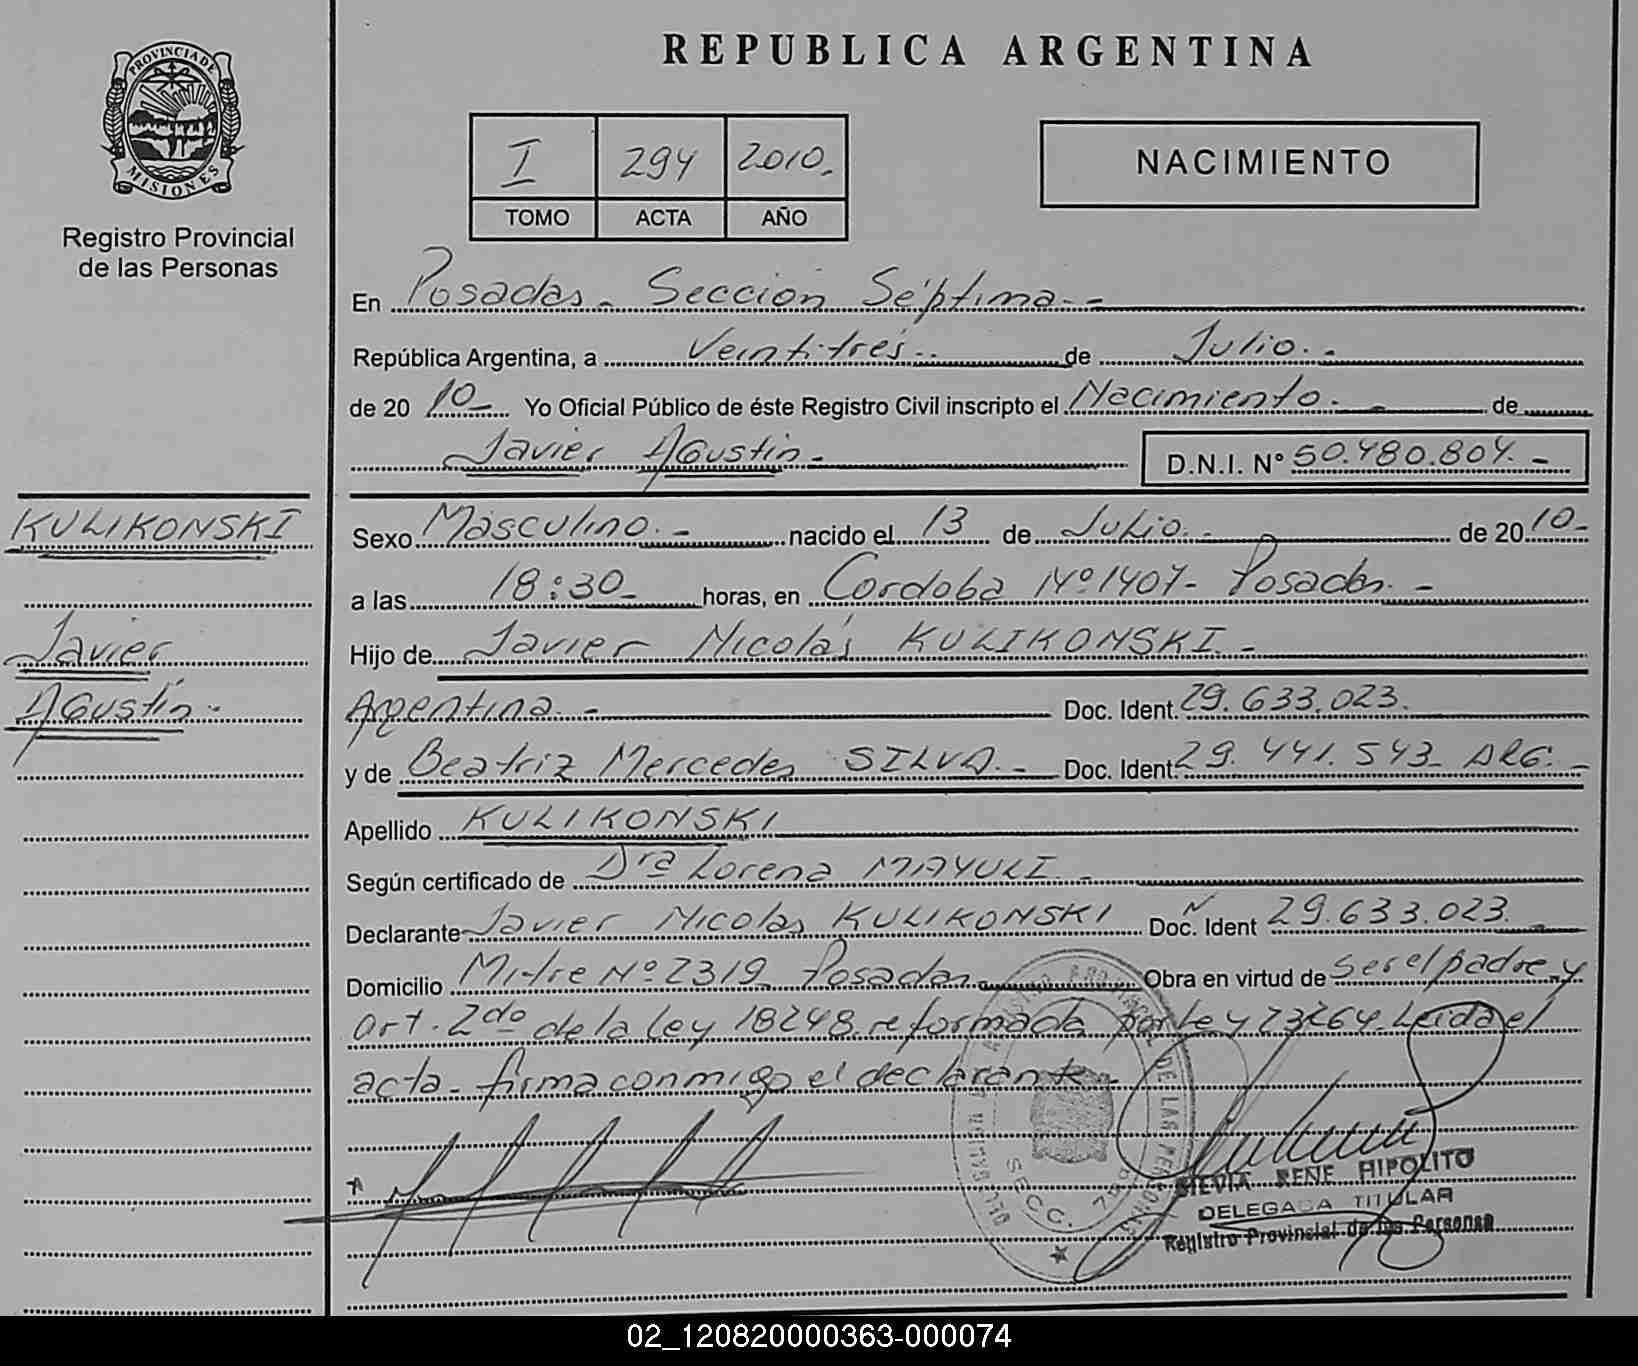 PROVINCIA DE
MISIONES
Registro Provincial
de las Personas
KULIKONSKI
Javier
Agustín.-
REPUBLICA ARGENTINA
I 294 2010.
TOMO ACTA AÑO
NACIMIENTO
En Posadas.- Sección Séptima.-
República Argentina, a Veintitrés.- de Julio.-
de 20 10- Yo Oficial Público de éste Registro Civil inscripto el Nacimiento.- de
Javier Agustín.- D.N.I. N° 50.480.804.-
Sexo Masculino.- nacido el 13 de Julio.- de 20 10-
a las 18:30- horas, en Córdoba Nº 1407- Posadas.-
Hijo de Javier Nicolás KULIKONSKI.-
Argentina.- Doc. Ident. 29.633.023.
y de Beatriz Mercedes SILVA.- Doc. Ident. 29.441.543- ARG.-
Apellido KULIKONSKI
Según certificado de Drª Lorena MAYULI.-
Declarante Javier Nicolas KULIKONSKI Doc. Ident 29.633.023.-
Domicilio Mitre Nº 2319 Posadas Obra en virtud de ser el padre y
art. 2do de la Ley 18248 reformada por Ley 23264. Leída el
acta- firma conmigo el declarante.-
SECC. 7ma
SILVIA RENE HIPOLITO
DELEGADA TITULAR
Registro Provincial de las Personas
02_120820000363-000074